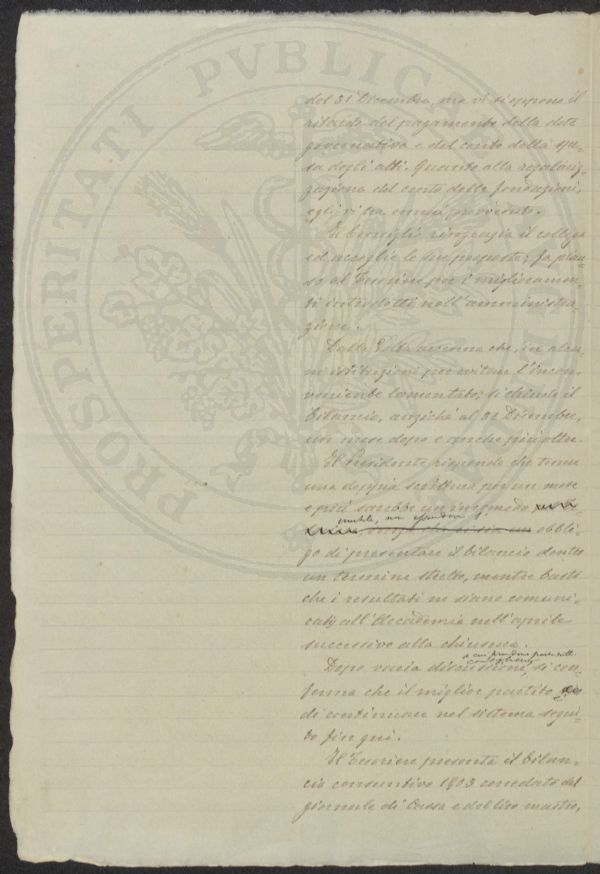 PROSPERITATI PVBLICAE
del 31 Dicembre, ma vi si oppone il
ritardo del pagamento della dote
governativa e del conto della spe-
sa degli atti. Quanto alla regolariz-
zazione del conto delle fondazioni,
egli vi ha omai provveduto.
Il Consiglio ringrazia il collega
ed accoglie le sue proposte; fa plau-
so al Tesoriere per i miglioramen-
ti introdotti nell'amministra-
zione.
Dalla Volta accenna che, in alcu-
ne istituzioni per evitare l'incon-
veniente lamentato, si chiude il
bilancio, anzichè al 31 Dicembre,
un mese dopo e anche più oltre.
Il Presidente risponde che tenere
una doppia scrittura per un mese
e più sarebbe un incomodo
inutile, non essendovi
obbli-
go di presentare il bilancio dentro
un termine stretto, mentre basta
che i resultati ne siano comuni-
cati all'Accademia nell'aprile
successivo alla chiusura.
a cui prendono parte tutti
i consiglieri
Dopo varia discussione, si con-
ferma che il miglior partito
di continuare nel sistema segui-
to fin qui.
Il Tesoriere presenta il bilan-
cio consuntivo 1903 corredato del
giornale di Cassa e del libro mastro,